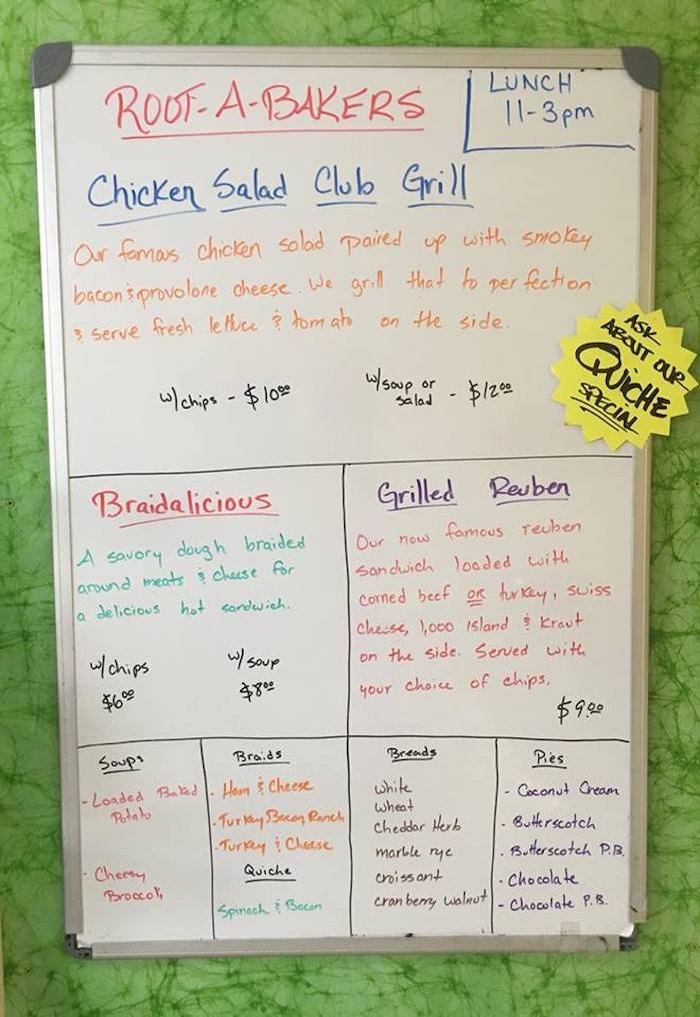 ROOT-A-BAKERS
LUNCH
11-3pm
Chicken Salad Club Grill
Our famous chicken salad paired up with smokey
bacon & provolone cheese. We grill that to perfection
& serve fresh lettuce & tomato on the side.
w/chips - $10.00
w/soup or
salad - $12.00
ASK
ABOUT OUR
QUICHE
SPECIAL
Braidalicious
A savory dough braided
around meats & cheese for
a delicious hot sandwich.
w/chips
$6.00
w/soup
$8.00
Grilled Reuben
Our now famous reuben
sandwich loaded with
corned beef OR turkey, swiss
cheese, 1,000 island & Kraut
on the side. Served with
your choice of chips.
$9.00
Soups
- Loaded Baked
Potato
- Cheesy
Broccoli
Braids
- Ham & Cheese
- Turkey Bacon Ranch
- Turkey & Cheese
Quiche
Spinach & Bacon
Breads
white
wheat
cheddar Herb
marble rye
croissant
cranberry walnut
Pies
- Coconut Cream
- Butterscotch
- Butterscotch P.B.
- Chocolate
- Chocolate P.B.